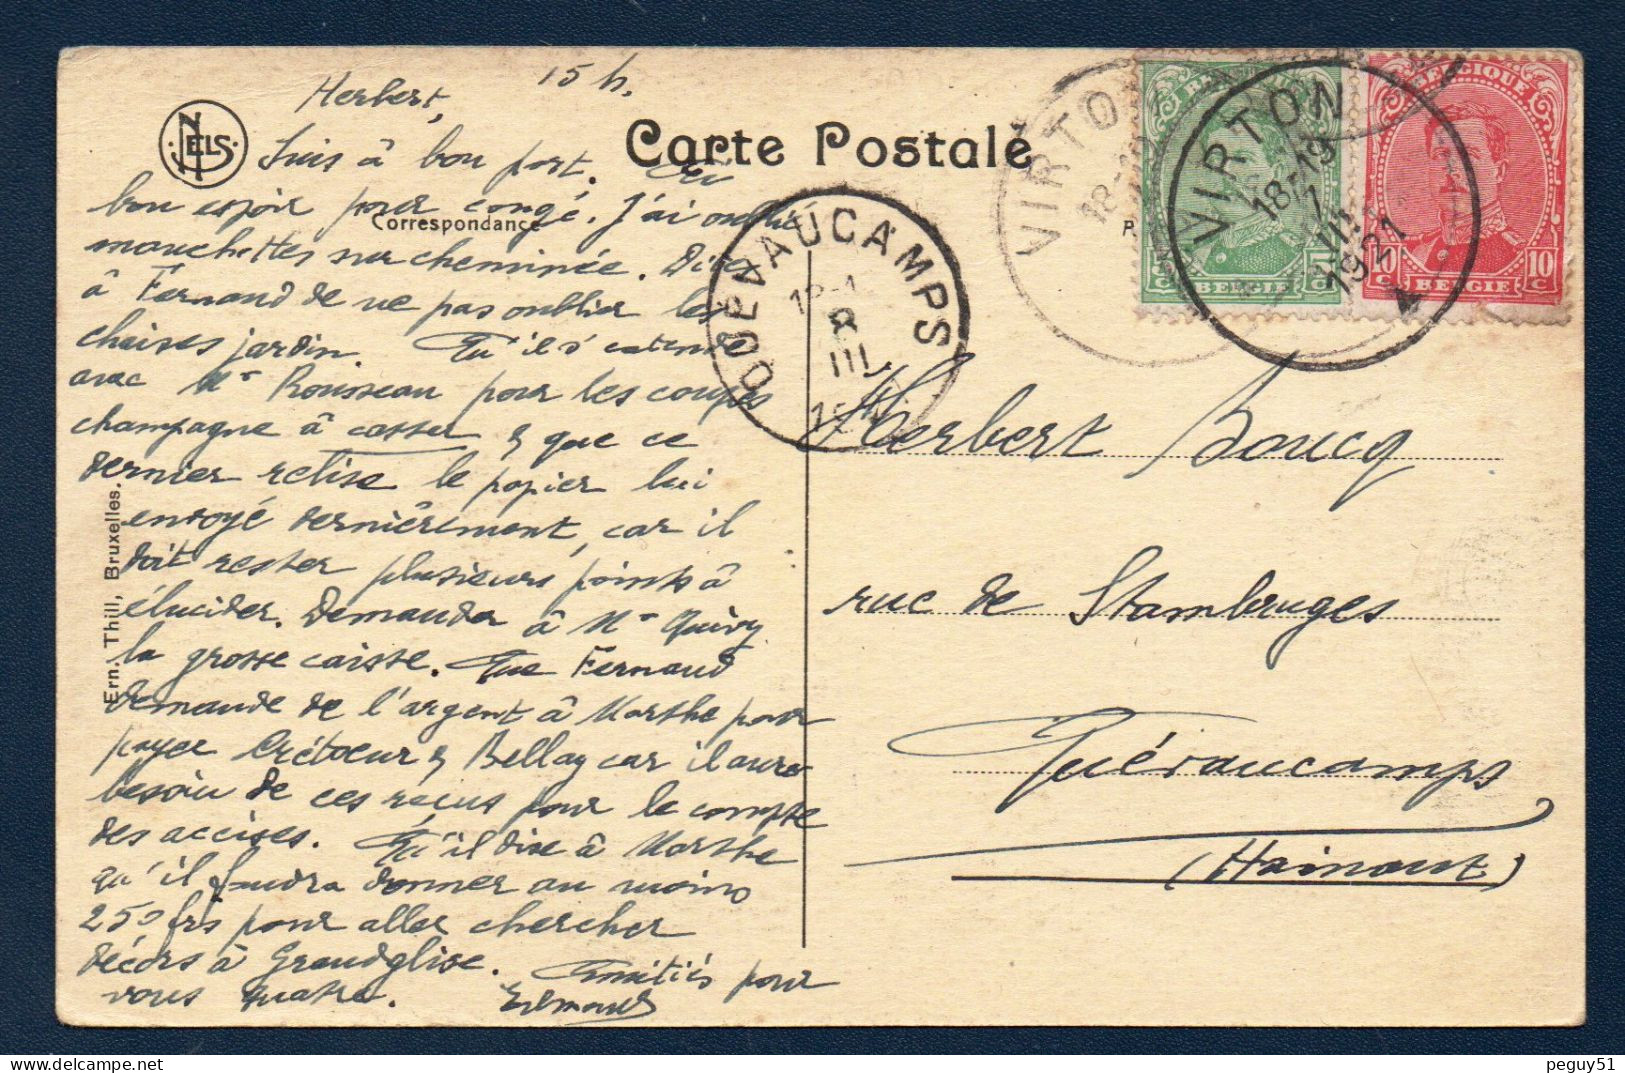 15 h.
Herbert,
NELS
Carte Postale
Suis à bon port.
bon espoir pour congé. J'ai oublié
Correspondance
manchettes sur cheminée. Dites
à Fernand de ne pas oublier les
chaises jardin. Qu'il s'entende
avec Mr Rousseau pour les coupes
champagne à casser & que ce
dernier relise le papier lui
envoyé dernièrement, car il
doit rester plusieurs points à
élucider. Demander à Mr Quivy
la grosse caisse. Que Fernand
demande de l'argent à Marthe pour
payer Crétoeur & Bellay car il aura
besoin de ces reçus pour le compte
des accises. Qu'il dise à Marthe
qu'il faudra donner au moins
250 frs pour aller chercher
décors à Grandglise. Amitiés pour
vous quatre. Edmond
Ern. Thill, Bruxelles.
QUÉVAUCAMPS
8
III
VIRTON
18-19
VIRTON
18-19
7
III
1921
BELGIQUE
5 c 5 c
BELGIE
BELGIQUE
10 c 10 c
BELGIE
Herbert Boucq
rue de Stambruges
Quévaucamps
(Hainaut)
peguy51